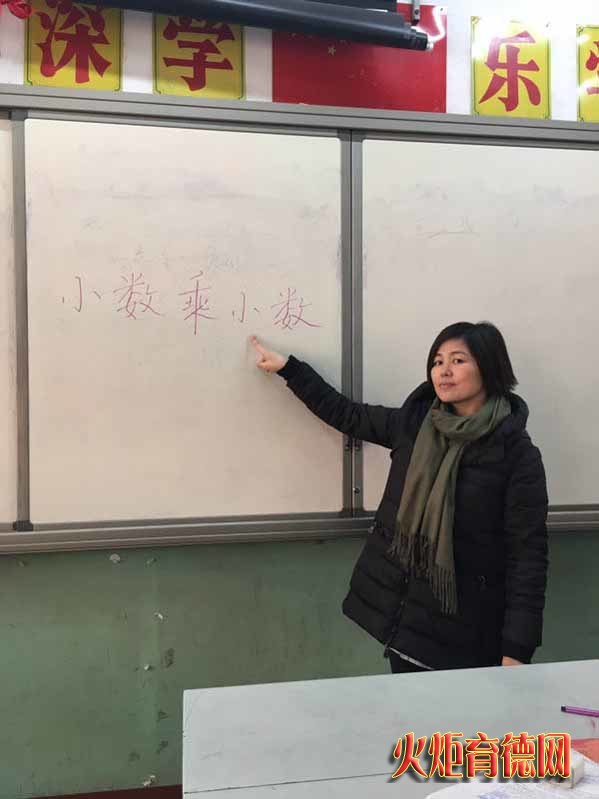 深学
乐
小数乘小数
火炬育德网